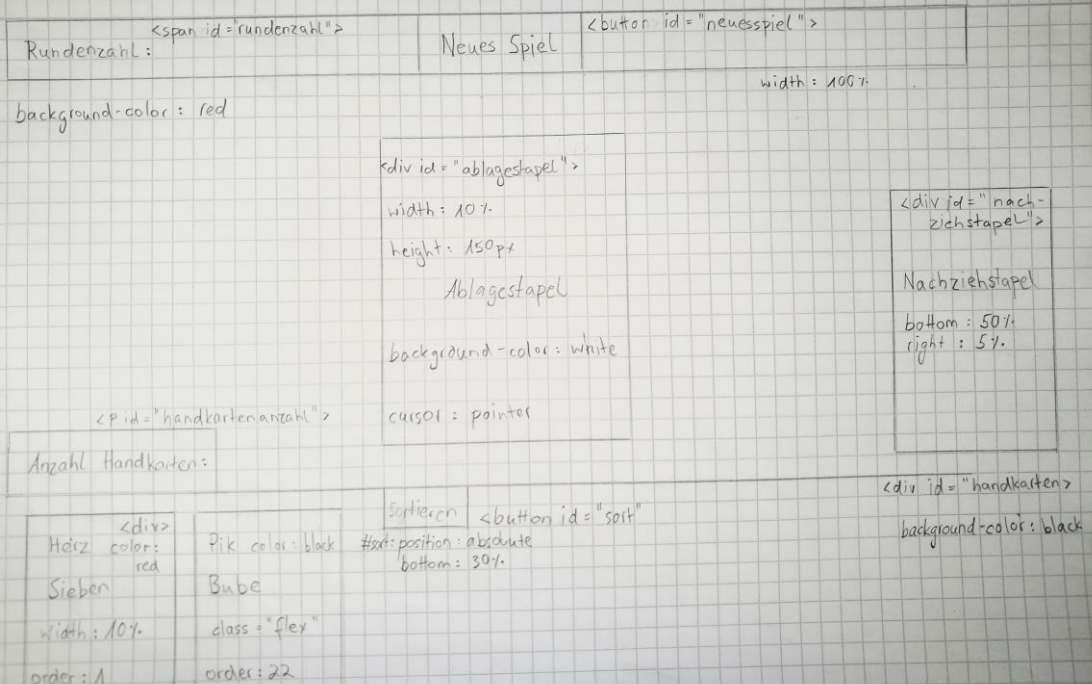 <span id="rundenzahl">
<button id="neuesspiel">
Rundenzahl:
Neues Spiel
width: 100%
background-color: red
<div id="ablagestapel">
width: 10%
height: 150px
Ablagestapel
background-color: white
cursor: pointer
<div id="nach-
ziehstapel">
Nachziehstapel
bottom: 50%
right: 5%
<p id="handkartenanzahl">
Anzahl Handkarten:
<div id="handkarten>
background-color: black
Sortieren
<button id="sort"
#sort: position: absolute
bottom: 30%
<div>
Herz color:
red
Sieben
width: 10%
order: 1
Pik color: black
Bube
class="flex"
order: 22